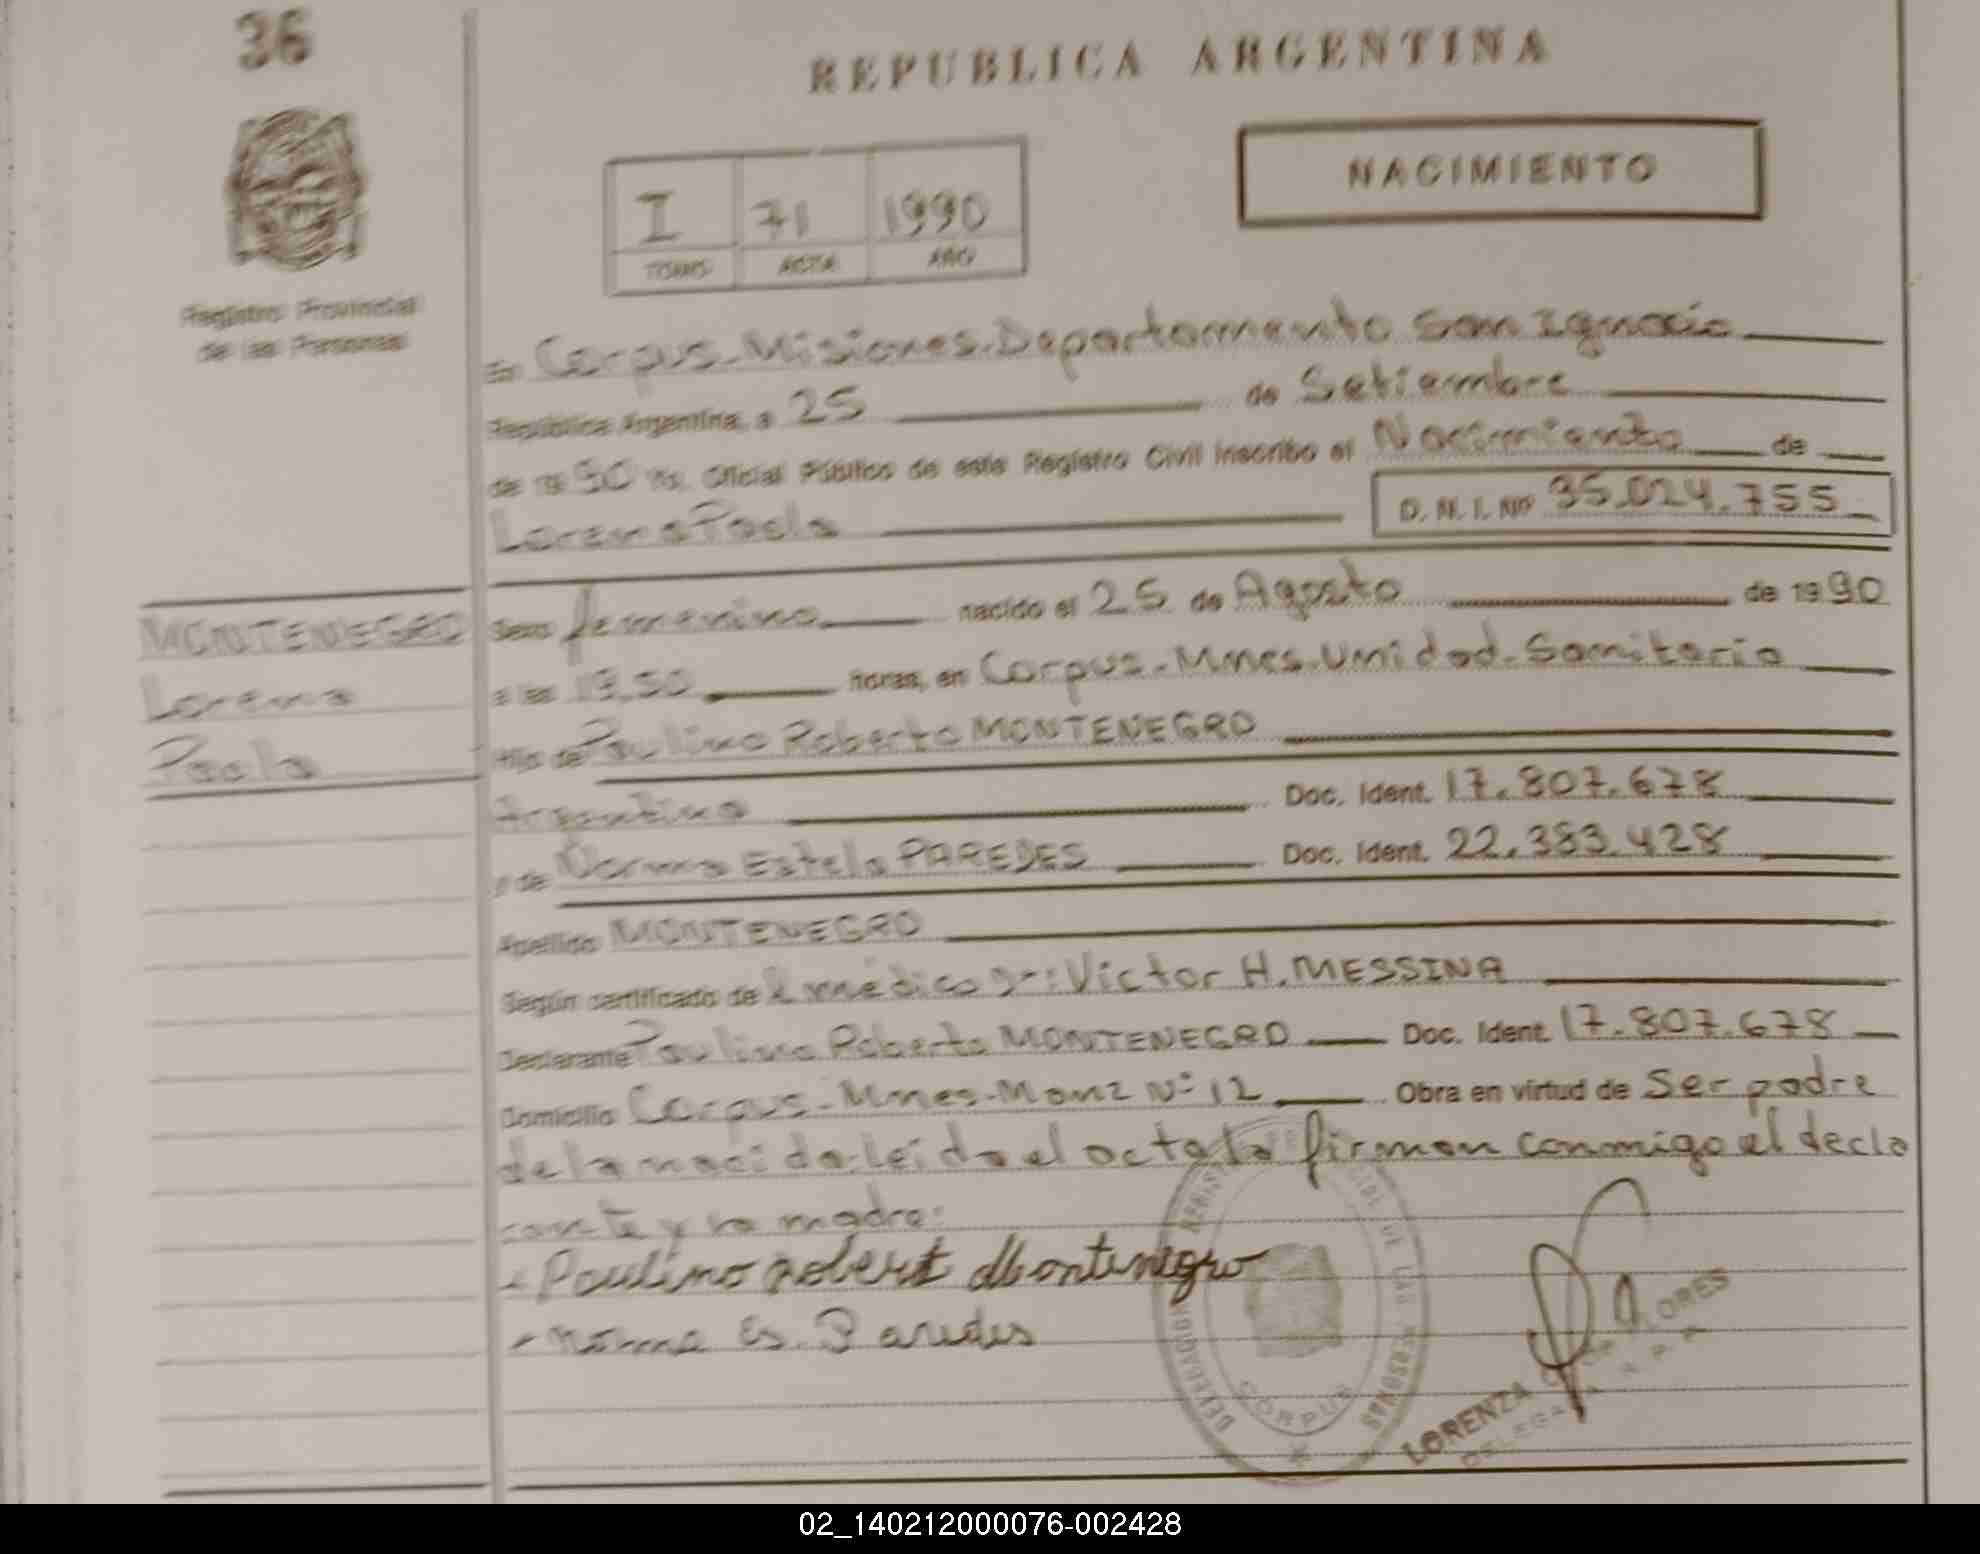 36
REPUBLICA ARGENTINA
NACIMIENTO
I 71 1990
TOMO ACTA AÑO
Registro Provincial
de las Personas
En Corpus-Misiones-Departamento San Ignacio
República Argentina, a 25 de Setiembre
de 19 90 Yo, Oficial Público de este Registro Civil inscribo el Nacimiento de
Lorena Paola D.N.I. Nº 35.024.755
MONTENEGRO
Lorena
Paola
Sexo femenino nacido el 25 de Agosto de 19 90
a las horas, en Corpus-Mnes-Unidad-Sanitaria
Hijo de Paulino Roberto MONTENEGRO
Argentino Doc. Ident. 17.807.678
y de Norma Estela PAREDES Doc. Ident. 22.383.428
Apellido MONTENEGRO
Según certificado de l médico Victor H. MESSINA
Declarante Paulino Roberto MONTENEGRO Doc. Ident. 17.807.678
Domicilio Corpus-Mnes-Manz Nº 12 Obra en virtud de Ser padre
de la nacida-leída el acta la firman conmigo el decla
rante y la madre:
- Paulino Robert Montenegro
- Norma Es. Paredes
CORPUS
DE LAS PERSONAS
LORENZA FLORES
02_140212000076-002428